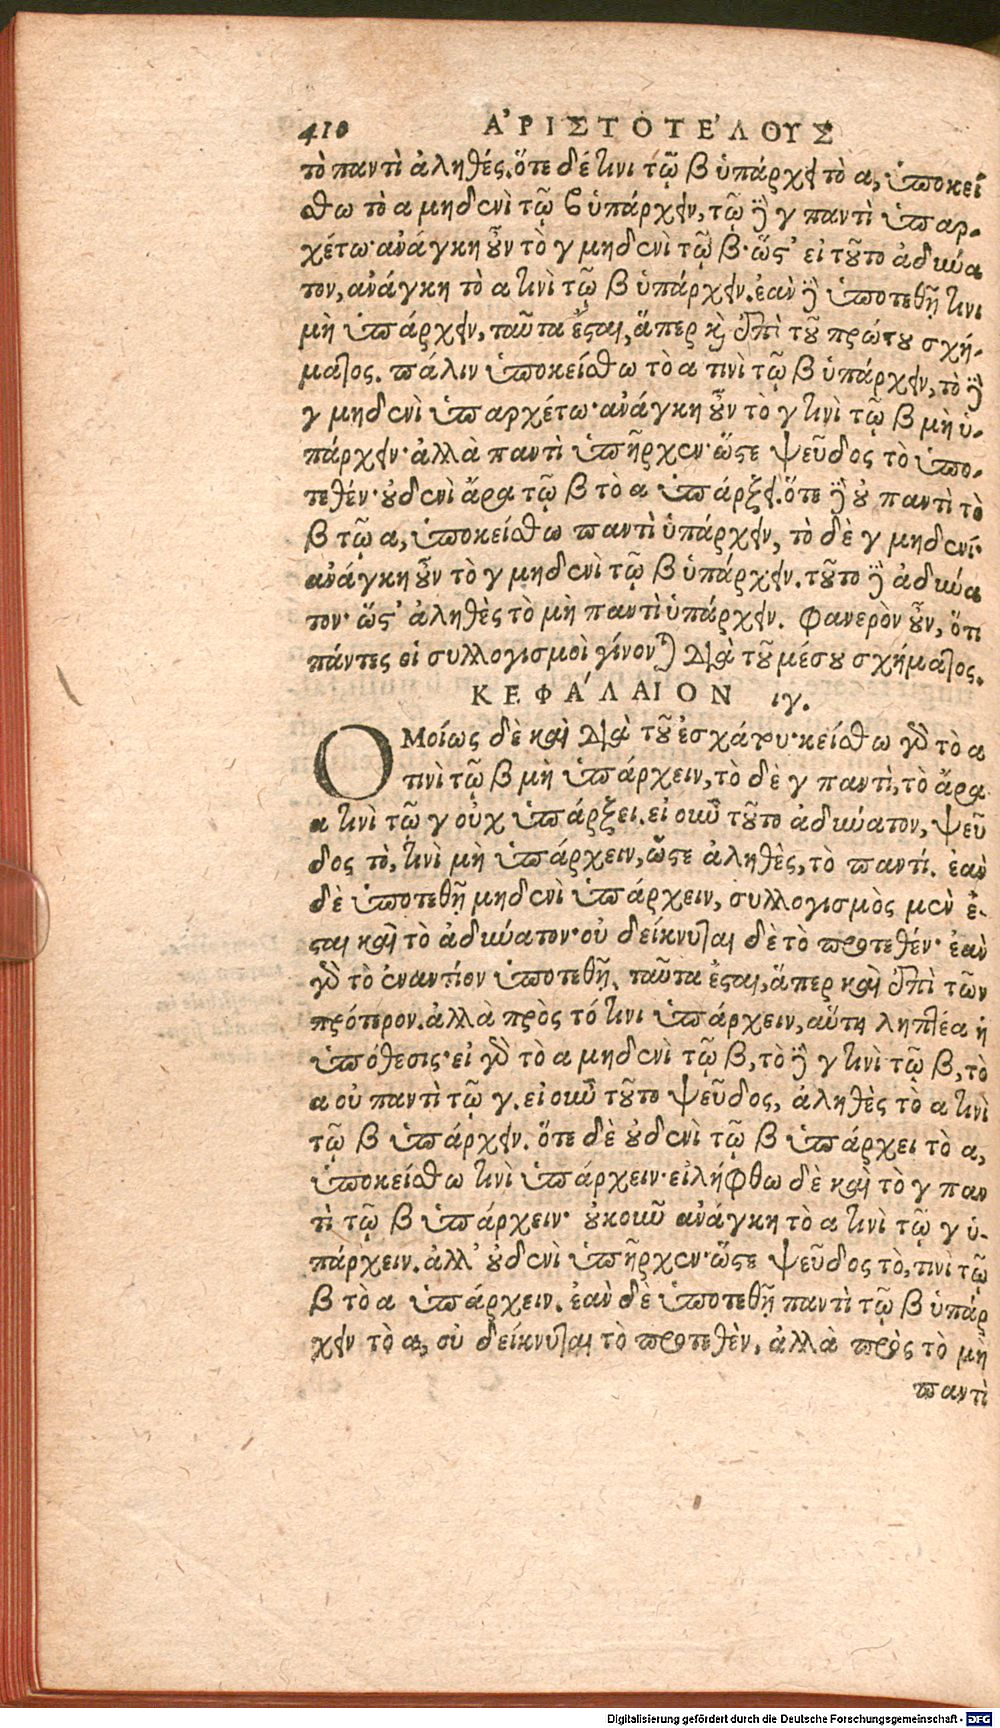 410 ἈΡΙΣΤΟΤΈΛΟΥΣ
τὸ παντὶ ἀληθές. ὅτε δέ τινι τῷ β ὑπάρχει τὸ α, ὑποκεί
σθω τὸ α μηδενὶ τῷ β ὑπάρχειν, τῷ δὲ γ παντὶ ὑπαρ-
χέτω· ἀνάγκη οὖν τὸ γ μηδενὶ τῷ β· ὥστ' εἰ τοῦτο ἀδύνα
τον, ἀνάγκη τὸ α τινὶ τῷ β ὑπάρχειν. ἐὰν δὲ ὑποτεθῇ τινι
μὴ ὑπάρχειν, ταῦτα ἔσται, ἅπερ καὶ ἐπὶ τοῦ πρώτου σχή-
ματος. πάλιν ὑποκείσθω τὸ α τινὶ τῷ β ὑπάρχειν, τὸ δὲ
γ μηδενὶ ὑπαρχέτω· ἀνάγκη οὖν τὸ γ τινὶ τῷ β μὴ ὑ-
πάρχειν· ἀλλὰ παντὶ ὑπῆρχεν· ὥστε ψεῦδος τὸ ὑπο-
τεθέν· οὐδενὶ ἄρα τῷ β τὸ α ὑπάρξει. ὅτε δὲ οὐ παντὶ τὸ
β τῷ α, ὑποκείσθω παντὶ ὑπάρχειν, τὸ δὲ γ μηδενί·
ἀνάγκη οὖν τὸ γ μηδενὶ τῷ β ὑπάρχειν. τοῦτο δὲ ἀδύνα
τον· ὥστ' ἀληθὲς τὸ μὴ παντὶ ὑπάρχειν. Φανερὸν οὖν, ὅτι
πάντες οἱ συλλογισμοὶ γίνονται διὰ τοῦ μέσου σχήματος.
ΚΕΦΆΛΑΙΟΝ ιγ.
ΟΜοίως δὲ καὶ διὰ τοῦ ἐσχάτου· κείσθω γὰρ τὸ α
τινὶ τῷ β μὴ ὑπάρχειν, τὸ δὲ γ παντὶ, τὸ ἄρα
α τινὶ τῷ γ οὐχ ὑπάρξει. εἰ οὖν τοῦτο ἀδύνατον, ψεῦ
δος τὸ, τινὶ μὴ ὑπάρχειν, ὥστε ἀληθὲς, τὸ παντί. ἐὰν
δὲ ὑποτεθῇ μηδενὶ ὑπάρχειν, συλλογισμὸς μὲν ἔ-
σται καὶ τὸ ἀδύνατον· οὐ δείκνυται δὲ τὸ προτεθέν· ἐὰν
γὰρ τὸ ἐναντίον ὑποτεθῇ, ταῦτα ἔσται, ἅπερ καὶ ἐπὶ τῶν
πρότερον. ἀλλὰ πρὸς τό τινι ὑπάρχειν, αὕτη ληπτέα ἡ
ὑπόθεσις· εἰ γὰρ τὸ α μηδενὶ τῷ β, τὸ δὲ γ τινὶ τῷ β, τὸ
α οὐ παντὶ τῷ γ. εἰ οὖν τοῦτο ψεῦδος, ἀληθὲς τὸ α τινὶ
τῷ β ὑπάρχειν. ὅτε δὲ οὐδενὶ τῷ β ὑπάρχει τὸ α,
ὑποκείσθω τινὶ ὑπάρχειν· εἰλήφθω δὲ καὶ τὸ γ παν
τὶ τῷ β ὑπάρχειν· οὐκοῦν ἀνάγκη τὸ α τινὶ τῷ γ ὑ-
πάρχειν. ἀλλ' οὐδενὶ ὑπῆρχεν· ὥστε ψεῦδος τὸ, τινὶ τῷ
β τὸ α ὑπάρχειν. ἐὰν δὲ ὑποτεθῇ παντὶ τῷ β ὑπάρ
χειν τὸ α, οὐ δείκνυται τὸ προτεθὲν, ἀλλὰ πρὸς τὸ μὴ
παντὶ
Digitalisierung gefördert durch die Deutsche Forschungsgemeinschaft - DFG